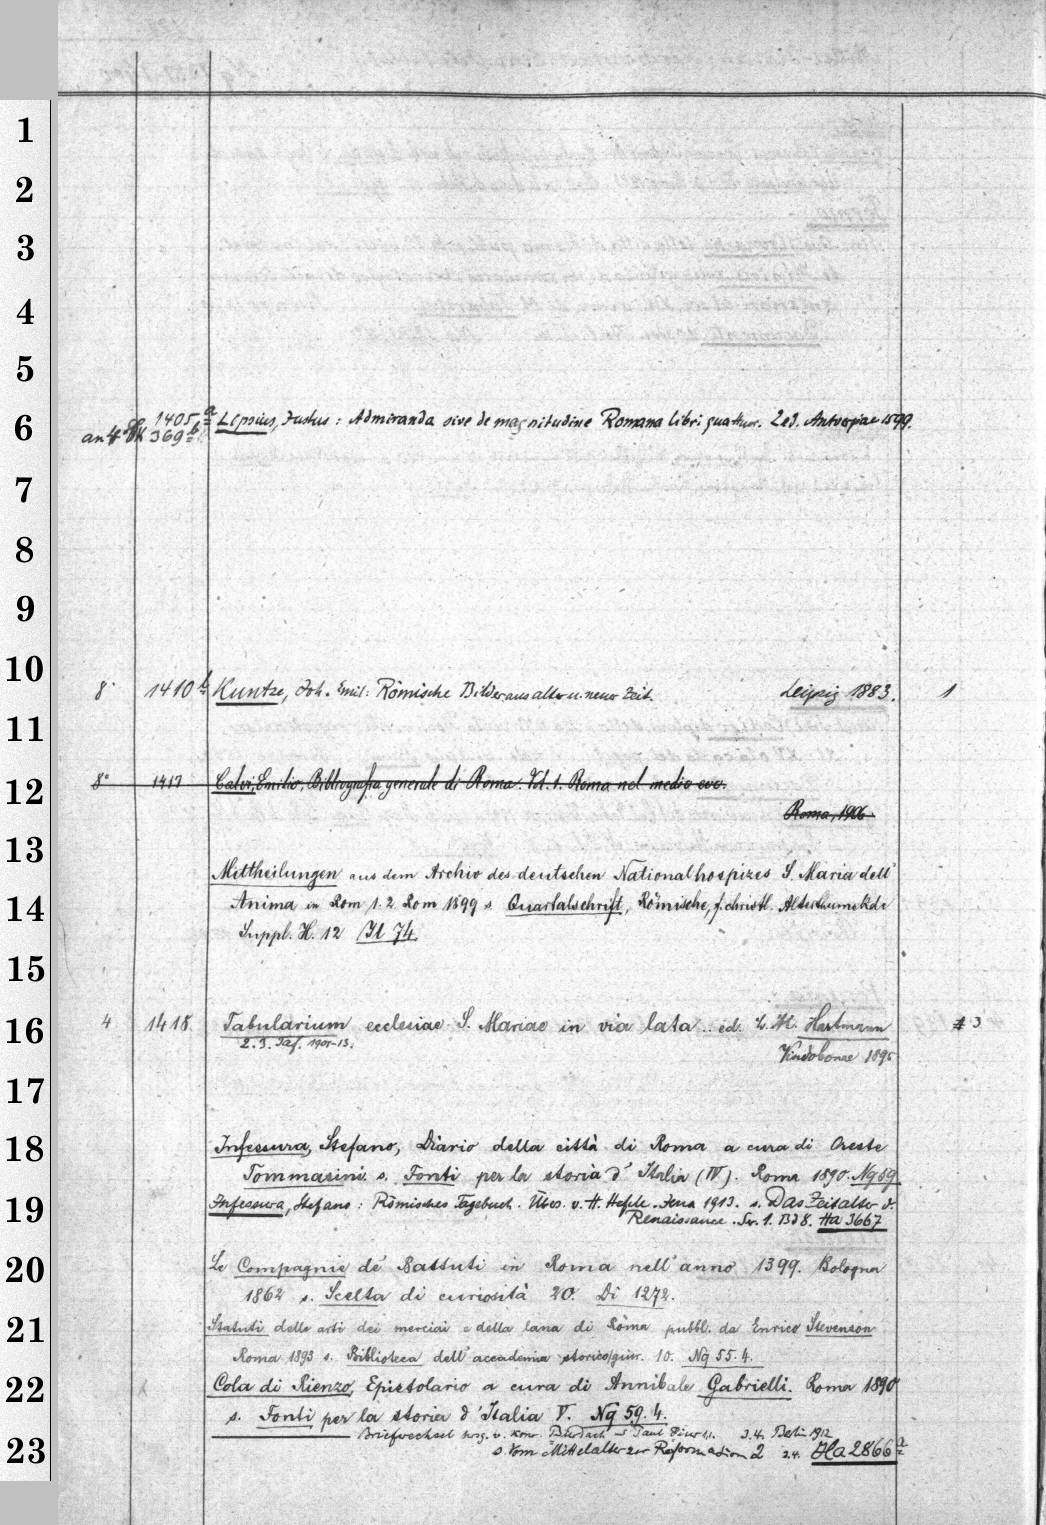 1
2
3
4
5
6
1405 a Lipsius, Justus: Admiranda sive de magnitudine Romana libri quattuor. 2 ed. Antverpiae 1599.
an 4° 369 b
7
8
9
10
8° 1410 b Kuntze, Joh. Emil: Römische Bilder aus alter u. neuer Zeit. Leipzig 1883. 1
11
12
8° 1417 Calvi, Emilio, Bibliografia generale di Roma. Vol. 1. Roma nel medio evo.
Roma, 1906
13
Mittheilungen aus dem Archiv des deutschen Nationalhospizes S. Maria dell'
14
Anima in Rom 1. 2. Rom 1899 s. Quartalschrift, Römische, f. christl. Alterthumskde
Suppl. H. 12 Il 74.
15
16
4 1418 Tabularium ecclesiae S. Mariae in via lata.. ed. L. M. Hartmann 3
2. 3. Taf. 1901-13.
Vindobonae 1895
17
18
Infessura, Stefano, Diario della città di Roma a cura di Oreste
Tommasini s. Fonti per la storia d'Italia (IV). Roma 1890. Nq 59
19
Infessura, Stefano: Römisches Tagebuch. Übers. v. H. Hefele. Jena 1913. s. Das Zeitalter d.
Renaissance. Ser. 1. Bd 8. Ha 3667
20
Le Compagnie de' Battuti in Roma nell'anno 1399. Bologna
1862 s. Scelta di curiosità 20. Di 1272.
21
Statuti delle arti dei merciai e della lana di Roma pubbl. da Enrico Stevenson
Roma 1893 s. Biblioteca dell'accademia storico giur. 10. Nq 55. 4.
22
Cola di Rienzo, Epistolario a cura di Annibale Gabrielli. Roma 1890
s. Fonti per la storia d'Italia V. Nq 59. 4.
Briefwechsel hrsg. v. Konr. Burdach u. Paul Piur 3. 4. Berlin 1912
23
s. Vom Mittelalter zur Reformation 2 3.4. Ha 2866 a